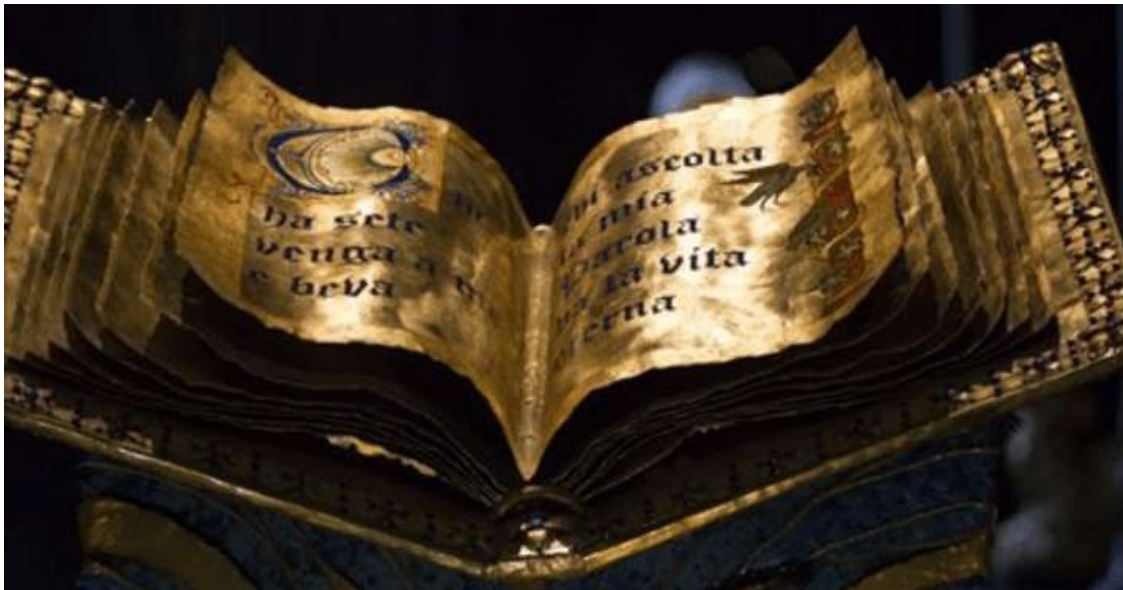 Chi
ha sete
venga a
e beva
ascolta
mia
parola
la vita
eterna